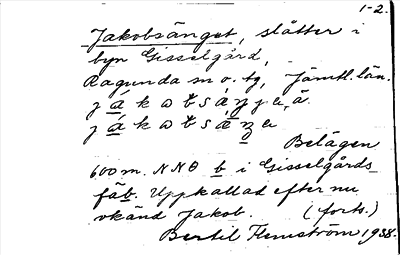 1-2.
Jakobsänget, slåtter i
byn Gisselgård,
Ragunda sn o. tg, Jämtl. län.
Belägen
600 m. NNO b i Gisselgårds
fäb. Uppkallad efter nu
okänd Jakob. (forts.)
Bertil Flemström 1938.